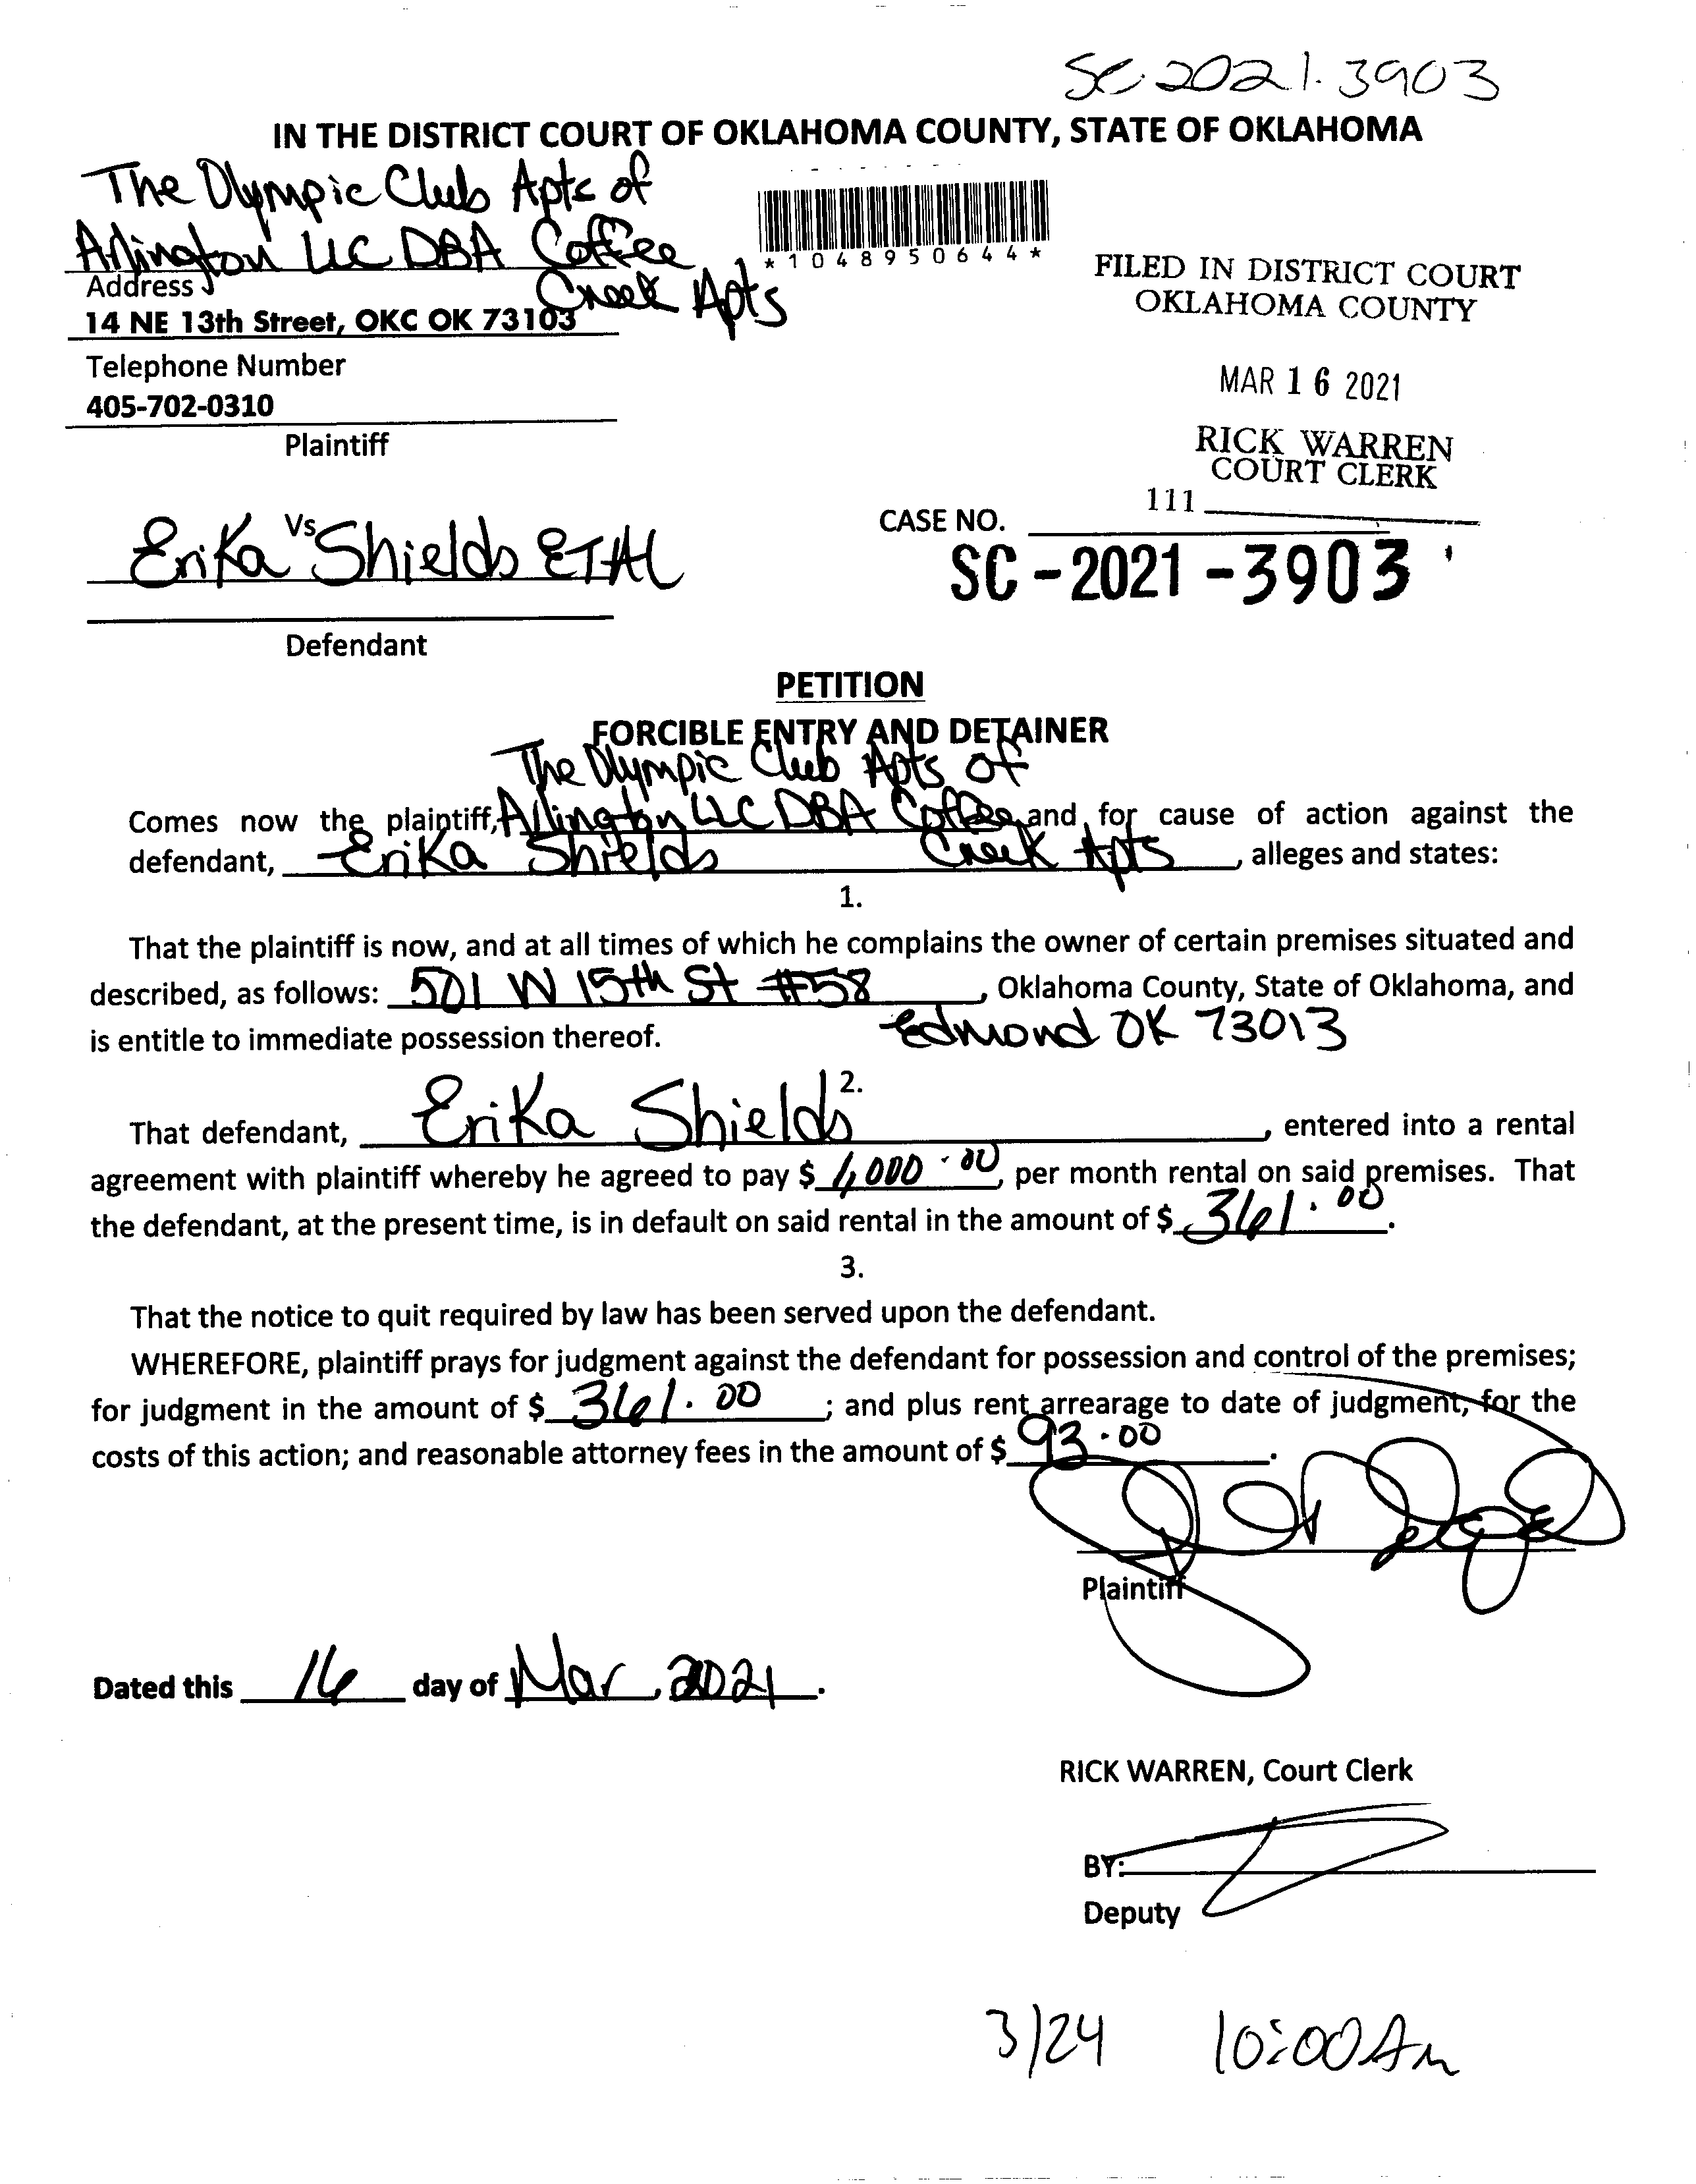 SC-2021-3903
IN THE DISTRICT COURT OF OKLAHOMA COUNTY, STATE OF OKLAHOMA
The Olympic Club Apts of
Arlington LLC DBA Coffee
Creek Apts
*1048950644*
Address
14 NE 13th Street, OKC OK 73103
Telephone Number
405-702-0310
Plaintiff
FILED IN DISTRICT COURT
OKLAHOMA COUNTY
MAR 16 2021
RICK WARREN
COURT CLERK
111
Vs
Erika Shields ETAL
Defendant
CASE NO.
SC-2021-3903
PETITION
FORCIBLE ENTRY AND DETAINER
The Olympic Club Apts of
Comes now the plaintiff, Arlington LLC DBA Coffee and for cause of action against the
defendant, Erika Shields Creek Apts, alleges and states:
1.
That the plaintiff is now, and at all times of which he complains the owner of certain premises situated and
described, as follows: 501 W 15th St #58, Oklahoma County, State of Oklahoma, and
is entitle to immediate possession thereof. Edmond OK 73013
2.
That defendant, Erika Shields, entered into a rental
agreement with plaintiff whereby he agreed to pay $ 1,000.00, per month rental on said premises. That
the defendant, at the present time, is in default on said rental in the amount of $ 361.00.
3.
That the notice to quit required by law has been served upon the defendant.
WHEREFORE, plaintiff prays for judgment against the defendant for possession and control of the premises;
for judgment in the amount of $ 361.00; and plus rent arrearage to date of judgment, for the
costs of this action; and reasonable attorney fees in the amount of $ 93.00.
Plaintiff
Dated this 16 day of Mar, 2021.
RICK WARREN, Court Clerk
BY:
Deputy
3/24 10:00 Am